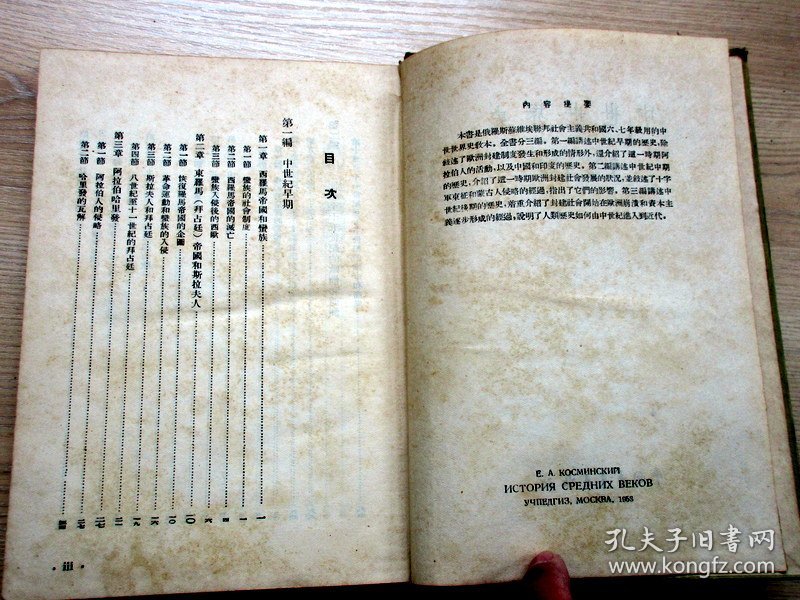 內容提要
本書是俄羅斯蘇維埃聯邦社會主義共和國六、七年級用的中
世世界史教本。全書分三編。第一編講述中世紀早期的歷史,除
敍述了歐洲封建制度發生和形成的情形外,還介紹了這一時期阿
拉伯人的活動,以及中國和印度的歷史。第二編講述中世紀中期
的歷史,介紹了這一時期歐洲封建社會發展的狀況,並敍述了十字
軍東征和蒙古人侵略的經過,指出了它們的影響。第三編講述中
世紀後期的歷史,着重介紹了封建社會開始在歐洲崩潰和資本主
義逐步形成的經過,說明了人類歷史如何由中世紀進入到近代。
Е. А. КОСМИНСКИЙ
ИСТОРИЯ СРЕДНИХ ВЕКОВ
УЧПЕДГИЗ, МОСКВА, 1953
目次
第一編 中世紀早期
第一章 西羅馬帝國和蠻族 一
第一節 蠻族的社會制度 一
第二節 西羅馬帝國的滅亡 四
第三節 蠻族入侵後的西歐 六
第二章 東羅馬(拜占廷)帝國和斯拉夫人 一〇
第一節 恢復羅馬帝國的企圖 一〇
第二節 革命運動和蠻族的入侵
第三節 斯拉夫人和拜占廷 一六
第四節 八世紀至十一世紀的拜占廷 一九
第三章 阿拉伯哈里發 二二
第一節 阿拉伯人的侵略
第二節 哈里發的瓦解 二七
iii
孔夫子旧书网
www.kongfz.com